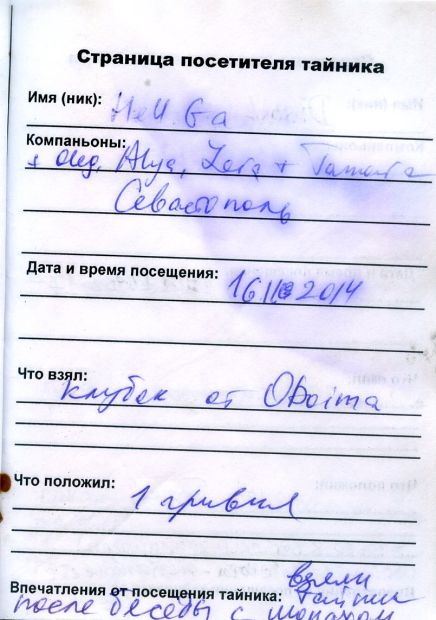 Страница посетителя тайника
Имя (ник): Hell.Ga
Компаньоны:
+ Oleg, Alya, Zora + Tamara
Севастополь
Дата и время посещения: 16 2014
Что взял:
клубок от
Что положил:
1 гривна
Впечатления от посещения тайника: взяли
после беседы с монахом